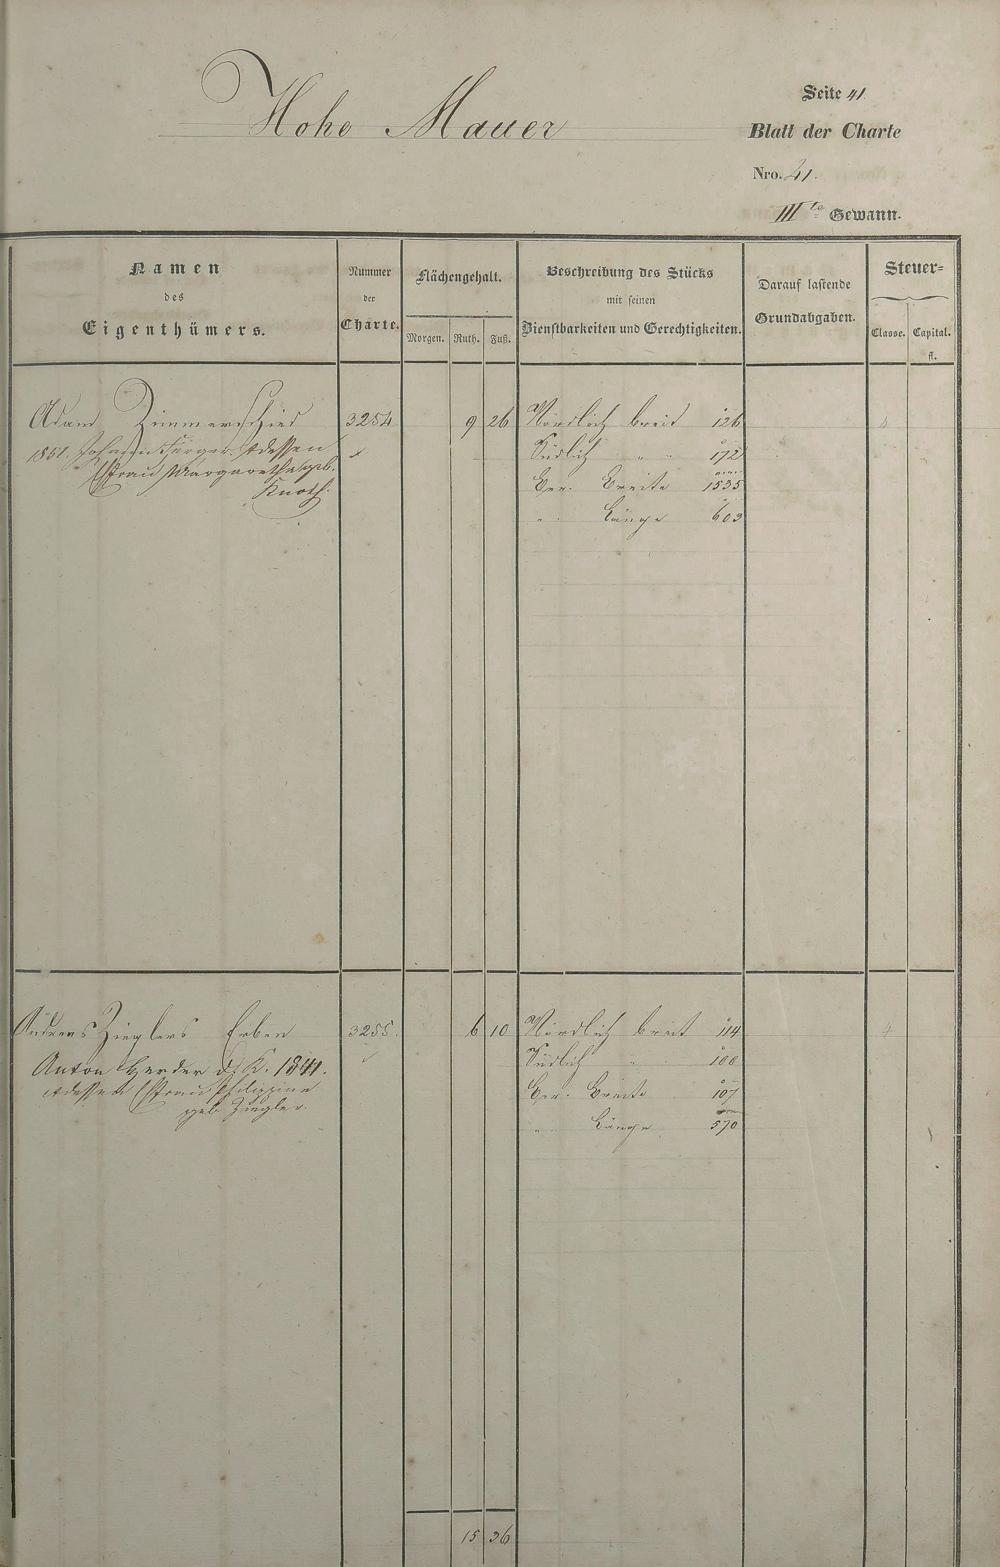 Hohe Mauer
Seite 41
Blatt der Charte
Nro. 21.
III te Gewann.
Namen
des
Eigenthümers.
Nummer
der
Charte.
Flächengehalt.
Morgen. Ruth. Fuß.
Beschreibung des Stücks
mit seinen
Dienstbarkeiten und Gerechtigkeiten.
Darauf lastende
Grundabgaben.
Steuer=
Classe. Capital.
fl.
Adam Zimmerschied 3254 9 26 Nördlich breit 126
1851. Johann Dessen Südlich " " 172
Ehfrau Margaretha geb. Ver. Breite 1535
Knoth. " Länge 603
Andreas Zieglers Erben 3255 6 10 Nördlich breit 114 4
Anton Herder d. K. 1841. Südlich " 100
dessen Ehfrau Philippine Ver. Breite 107
geb. Ziegler. " Länge 570
15 36